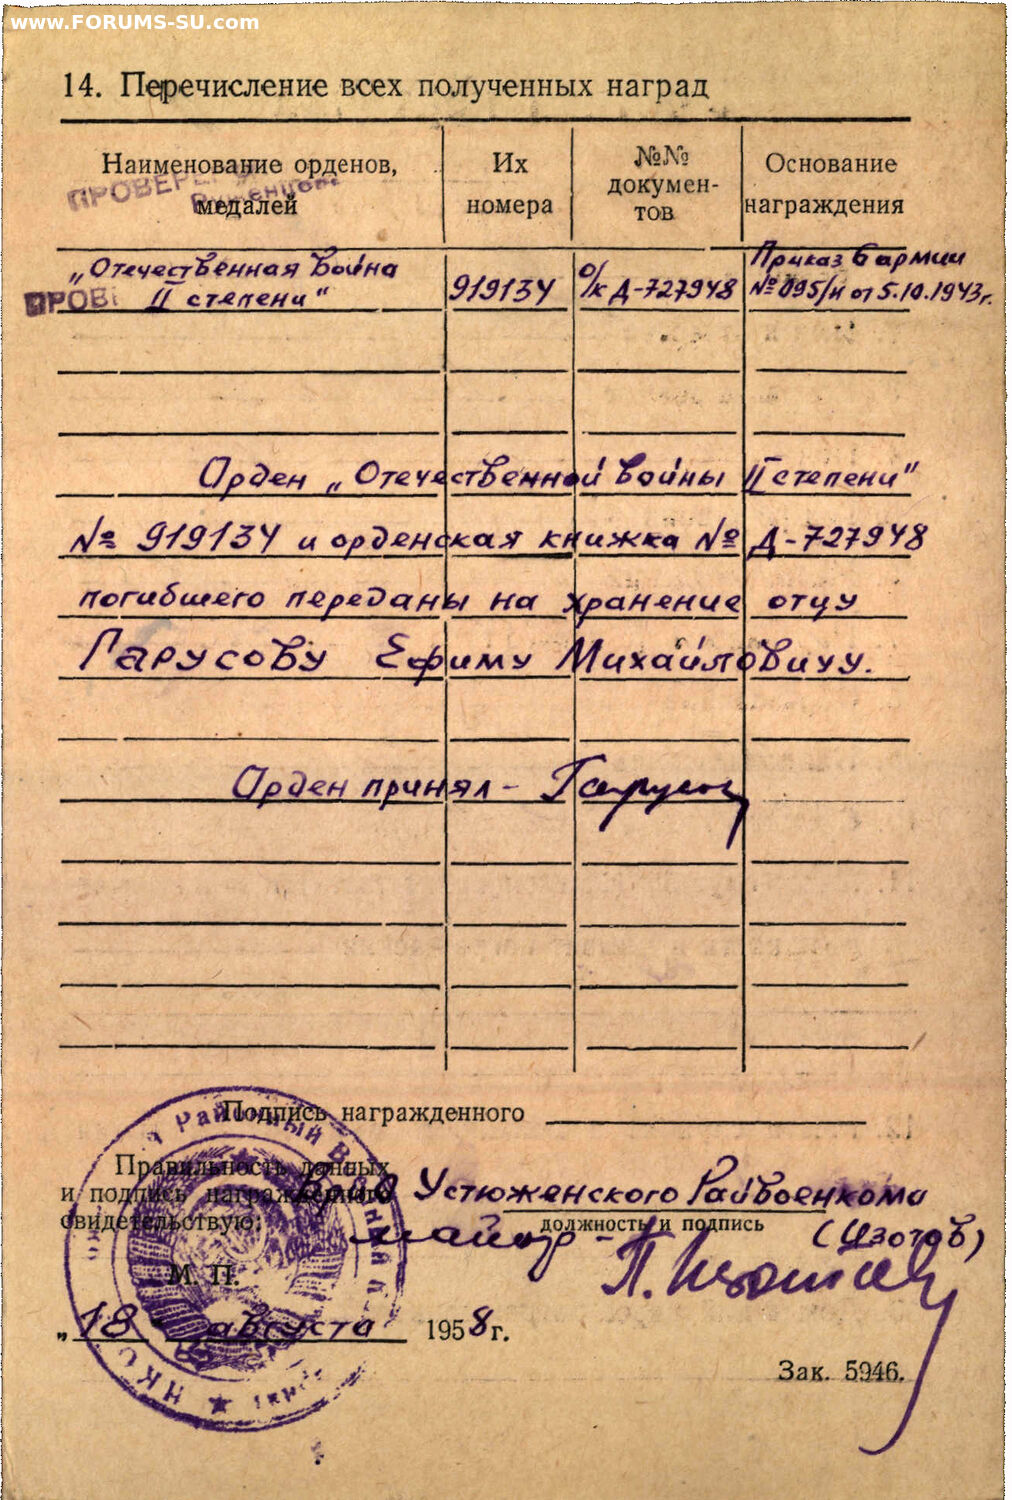 www.FORUMS-SU.com
14. Перечисление всех полученных наград
Наименование орденов, медалей
Их номера
№№ докумен-
тов
Основание награждения
ПРОВЕРЕНО
„Отечественная война
II степени“
919134
о/к Д-727948
Приказ 6 армии
№ 095/н от 5.10.1943г.
ПРОВЕ
Орден „Отечественной войны II степени“
№ 919134 и орденская книжка № Д-727948
погибшего переданы на хранение отцу
Гарусову Ефиму Михайловичу.
Орден принял - Гарусов
Подпись награжденного
Правильность данных
и подпись награжденного
свидетельствую:
Устюженского Райвоенкома
должность и подпись
майор - (Изотов)
М. П.
„18“ августа 1958 г.
Зак. 5946.
Районный
НКО